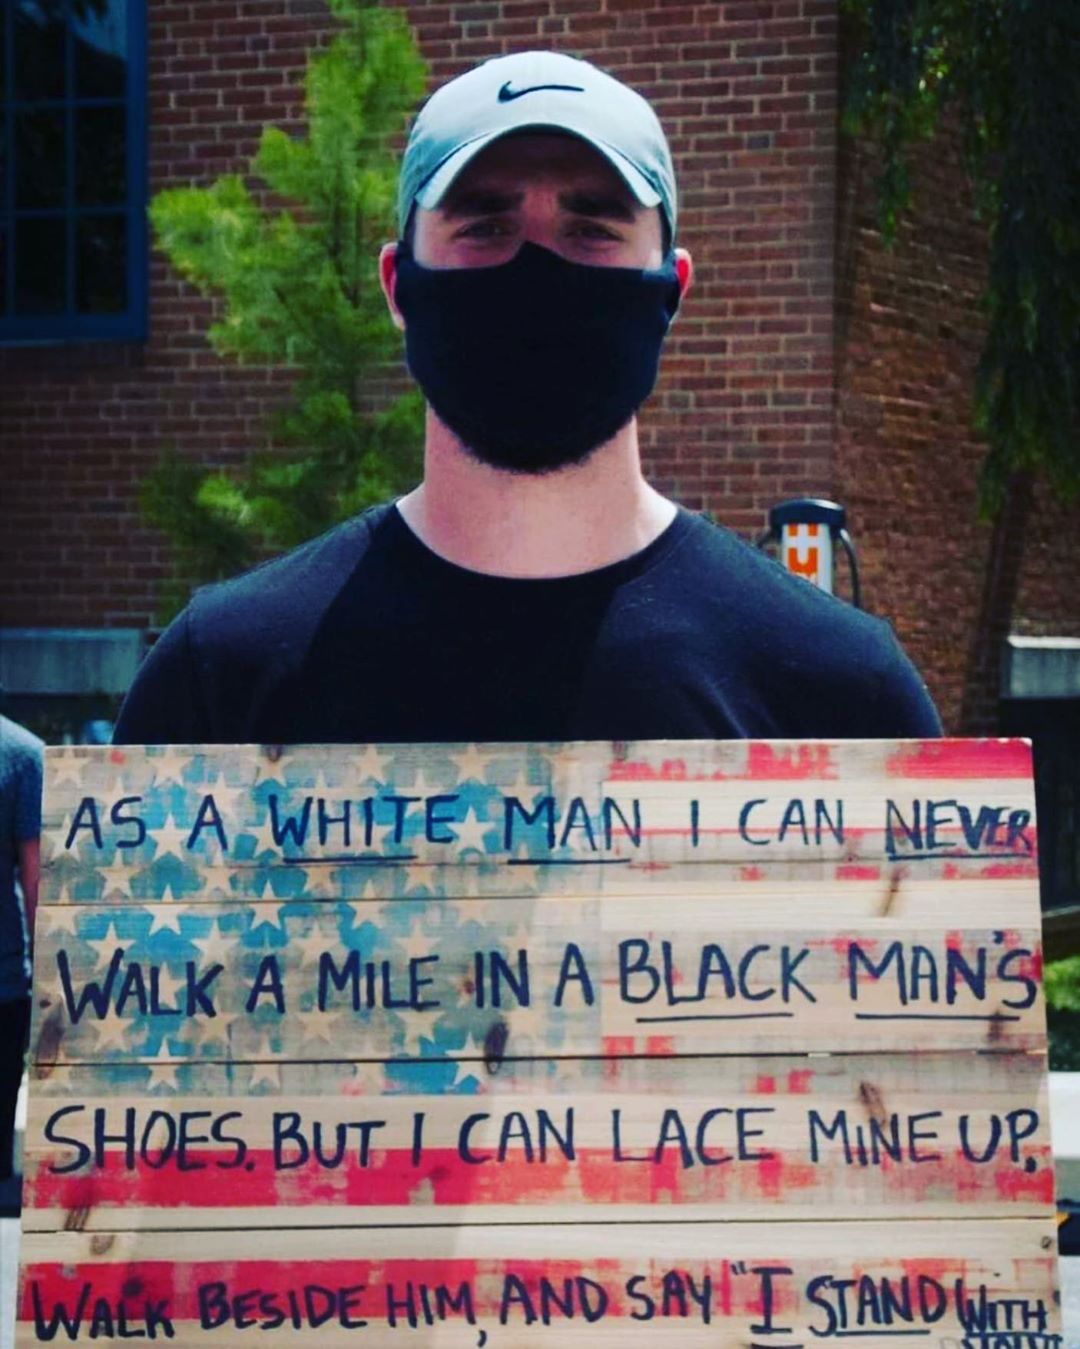 AS A WHITE MAN I CAN NEVER
WALK A MILE IN A BLACK MAN'S
SHOES. BUT I CAN LACE MINE UP,
WALK BESIDE HIM, AND SAY "I STAND WITH